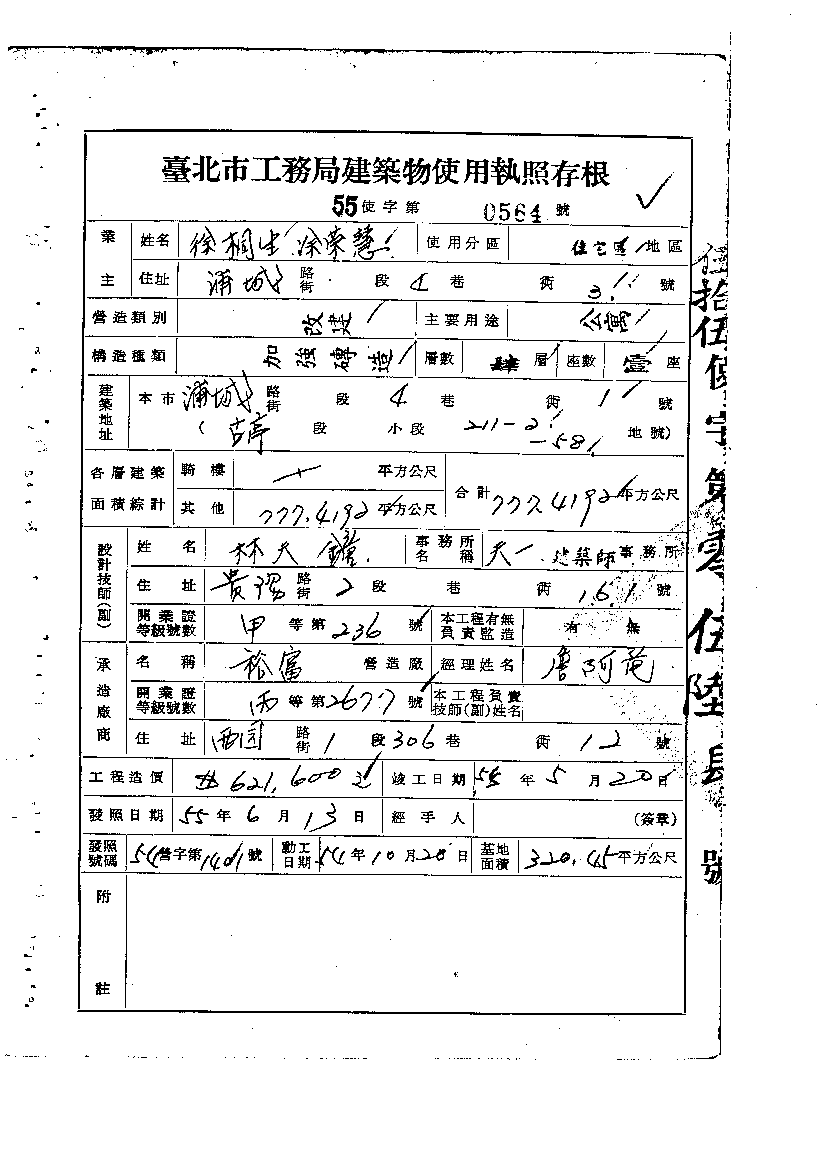 臺北市工務局建築物使用執照存根
55使字第0564號
業主 姓名 徐桐生 涂榮慧 使用分區 住宅區 地區
住址 浦城 路街 段 4 巷 衖 3 號
營造類別 改建 主要用途 公寓
構造種類 加強磚造 層數 肆 層 座數 壹 座
建築地址 本市 浦城 路街 段 4 巷 衖 1 號
(古亭 段 小段 211-2 -58 地號)
各層建築面積綜計 騎樓 平方公尺 合計 777.4192 平方公尺
其他 777.4192 平方公尺
設計技師(副) 姓名 林天 事務所名稱 天一建築師 事務所
住址 貴陽 路街 2 段 巷 衖 16.1 號
開業證等級號數 甲 等第 236 號 本工程有無負責監造 有 無
承造廠商 名稱 裕富 營造廠 經理姓名 詹阿竜
開業證等級號數 丙 等第 2677 號 本工程負責技師(副)姓名
住址 西园 路街 1 段 306 巷 衖 12 號
工程造價 621,600 竣工日期 55 年 5 月 20 日
發照日期 55 年 6 月 13 日 經手人 (簽章)
發照號碼 54營字第1401號 動工日期 54 年 10 月 28 日 基地面積 320.45 平方公尺
附註
伍拾伍使字第零伍陸 號